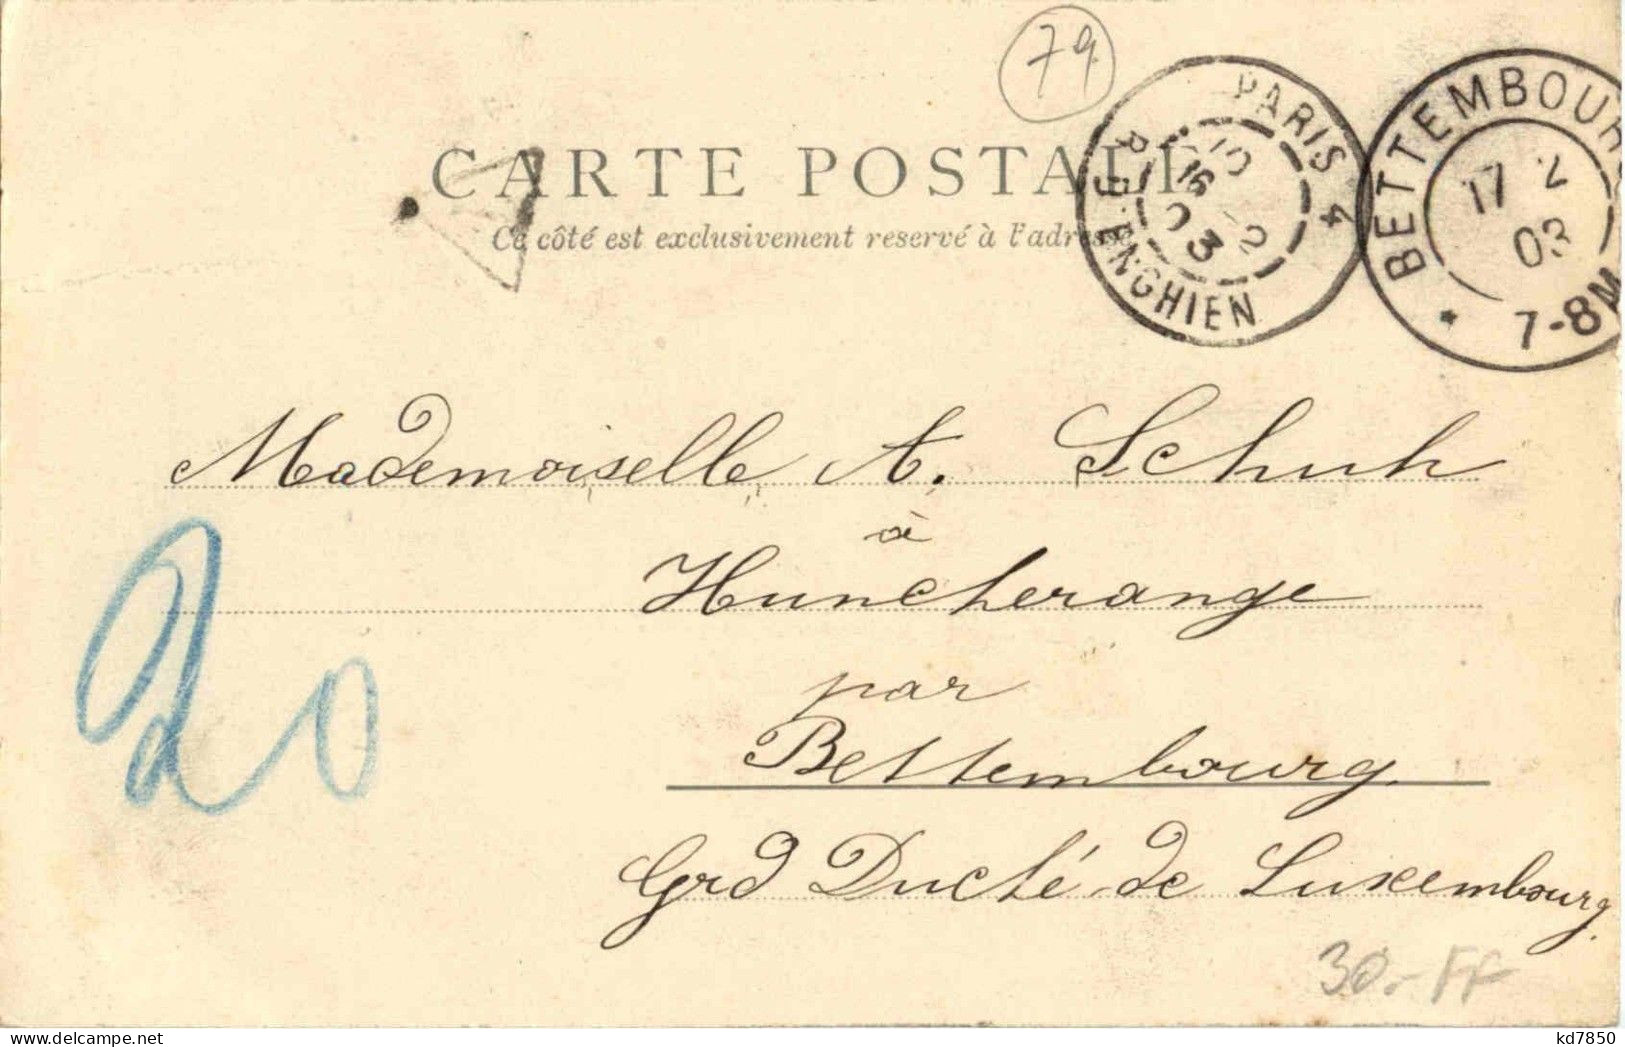 79
CARTE POSTALE
Ce côté est exclusivement reservé à l'adresse
PARIS 4
R. D'ENGHIEN
16 -2
03
BETTEMBOURG
17 2
03
7-8M
Mademoiselle A. Schuh
à
Huncherange
par
Bettembourg
Grd Duché de Luxembourg.
20
30.- FF
kd7850